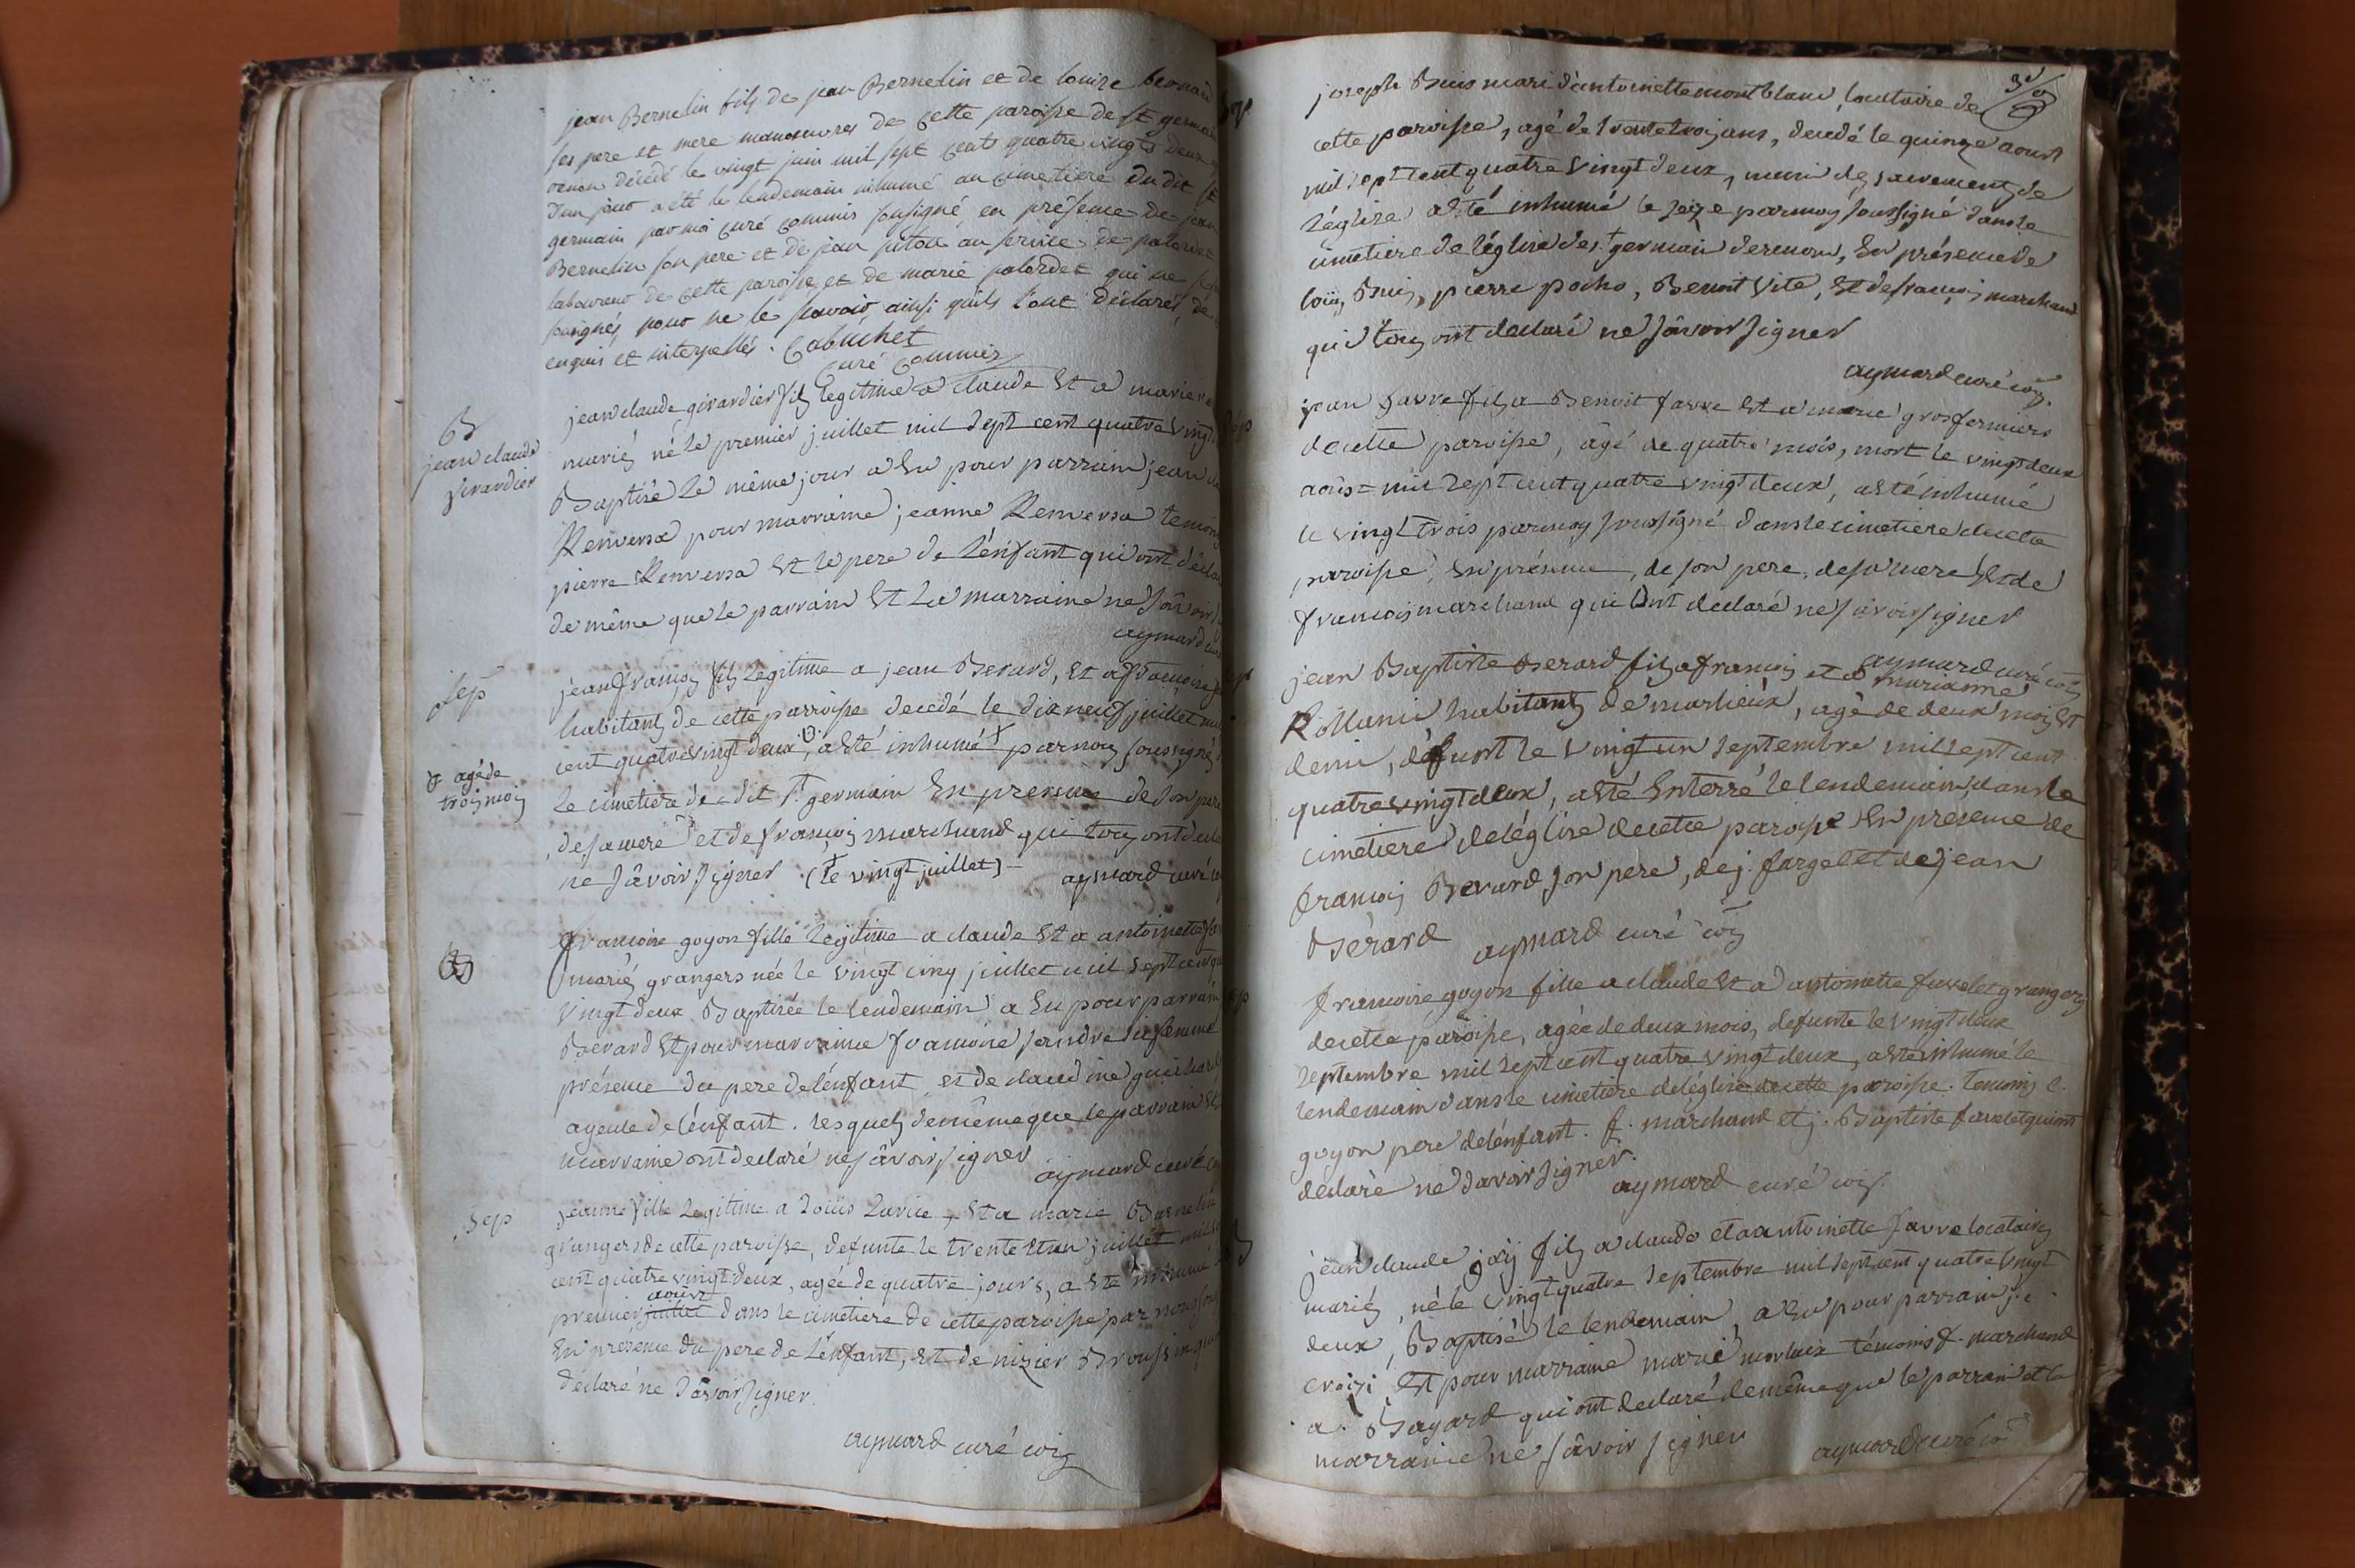 jean Bernelin fils de jean Bernelin et de louise
ses pere et mere manoeuvres de cette paroisse de st
renon décédé le vingt juin mil sept cents quatre vingts deux
d'un jour a été le lendemain inhumé au cimetiere du dit st
germain par moi curé commis soussigné en présence de jean
Bernelin son pere et de jean au service de
laboureur de cette paroisse et de marie palordet qui ne
pour ne le scavoir ainsi qu'ils l'ont déclarés, de
enquis et interpellés. Cabuchet
curé commis
B
jean claude
girardier
jean claude girardier fils legitime a claude Et a marie
mariés né le premier juillet mil sept cent quatre vingt
Baptisé le même jour a Eu pour parrain jean
Renversa pour marraine jeanne Renversa temoins
pierre Renversa Et le pere de l'énfant qui ont
de même que le parrain Et La marraine ne sâvoir
aymard
sep
jean francois fils Legitime a jean Berard, Et a francoise
habitants de cette parroisse decedé le dix neuf juillet
cent quatre vingt deux, a Eté inhumé + par nous soussigné
+ agé de
trois mois
le cimetiere de dit St. germain En presence de son pere
, de sa mere et de francois marchand qui tous ont
ne sâvoir signer (+ le vingt juillet) - aymard curé
B
francoise goyon fille legitime a claude Et a antoinette
mariés grangers née le vingt cinq juillet mil sept cent
vingt deux Baptisée le lendemain a Eu pour parrain
Berard Et pour marraine francoise sa femme
présence du pere de lénfant et de claudine
ayeule de lénfant. lesquels de même que le parrain Et
marraine ont declaré ne sâvoir signer
aymard curé
Sep
jeanne fille Legitime a Loüis Et a marie Bernelin
grangers de cette paroisse, defunte le trente Et un juillet
cent quatre vingt deux, agée de quatre jours, a Eté inhumé
aoust
premier juillet dans le cimetiere de cette paroisse par nous
En présence du pere de l'énfant, Et de nizier Broussin
declaré ne sâvoir signer.
aymard curé cois
joseph Buis mari d'antoinette montblanc, locataire de
cette paroisse, agé de trente trois ans, decedé le quinze aoust
mil sept cent quatre vingt deux, muni des sacrements de
l'église a Eté inhumé le seize par moy soussigné dans le
cimetiere de l'église de st germain derenom, En présence de
loüis Buis, pierre pocho, Benoit Vite, Et de francois marchand
qui tous ont declaré ne sâvoir signer
aymard curé cois.
jean favre fils a Benoit favre Et a marie gros fermiers
de cette paroisse, âgé de quatre mois, mort le vingt deux
aoust mil sept cent quatre vingt deux, a Eté inhumé
le vingt trois par moy soussigné dans le cimetiere de cette
paroisse, En présence, de son pere, de sa mere Et de
francois marchand qui ont declaré ne sâvoir signer
aymard curé cois
jean Baptiste Berard fils a francois et a marianne
Rollanin habitants de marlieux, agé de deux mois Et
demi, défunt le vingt un septembre mil sept cent
quatre vingt deux, a Eté Enterré le lendemain dans le
cimetiere de léglise de cette paroisse En presence de
francois Berard son pere, de j. farget et de jean
Bérard aymard curé cois
francoise goyon fille a claude Et a antoinette favelet grangers
de cette paroisse, agée de deux mois, defunte le vingt deux
septembre mil sept cent quatre vingt deux, a Eté inhumé le
lendemain dans le cimetiere de léglise de cette paroisse. temoins c.
goyon pere de lénfant. f. marchand et j. Baptiste favelet qui ont
declaré ne savoir signer.
aymard curé cois.
jean claude fils a claude et a antoinette favre locataires
mariés, né le vingt quatre septembre mil sept cent quatre vingt
deux, Baptisé le lendemain, a Eu pour parrain j. c.
croizi Et pour marraine marie témoins f. marchand
a. Bagard qui ont declaré de même que le parrain et la
marraine ne sâvoir signer aymard curé cois